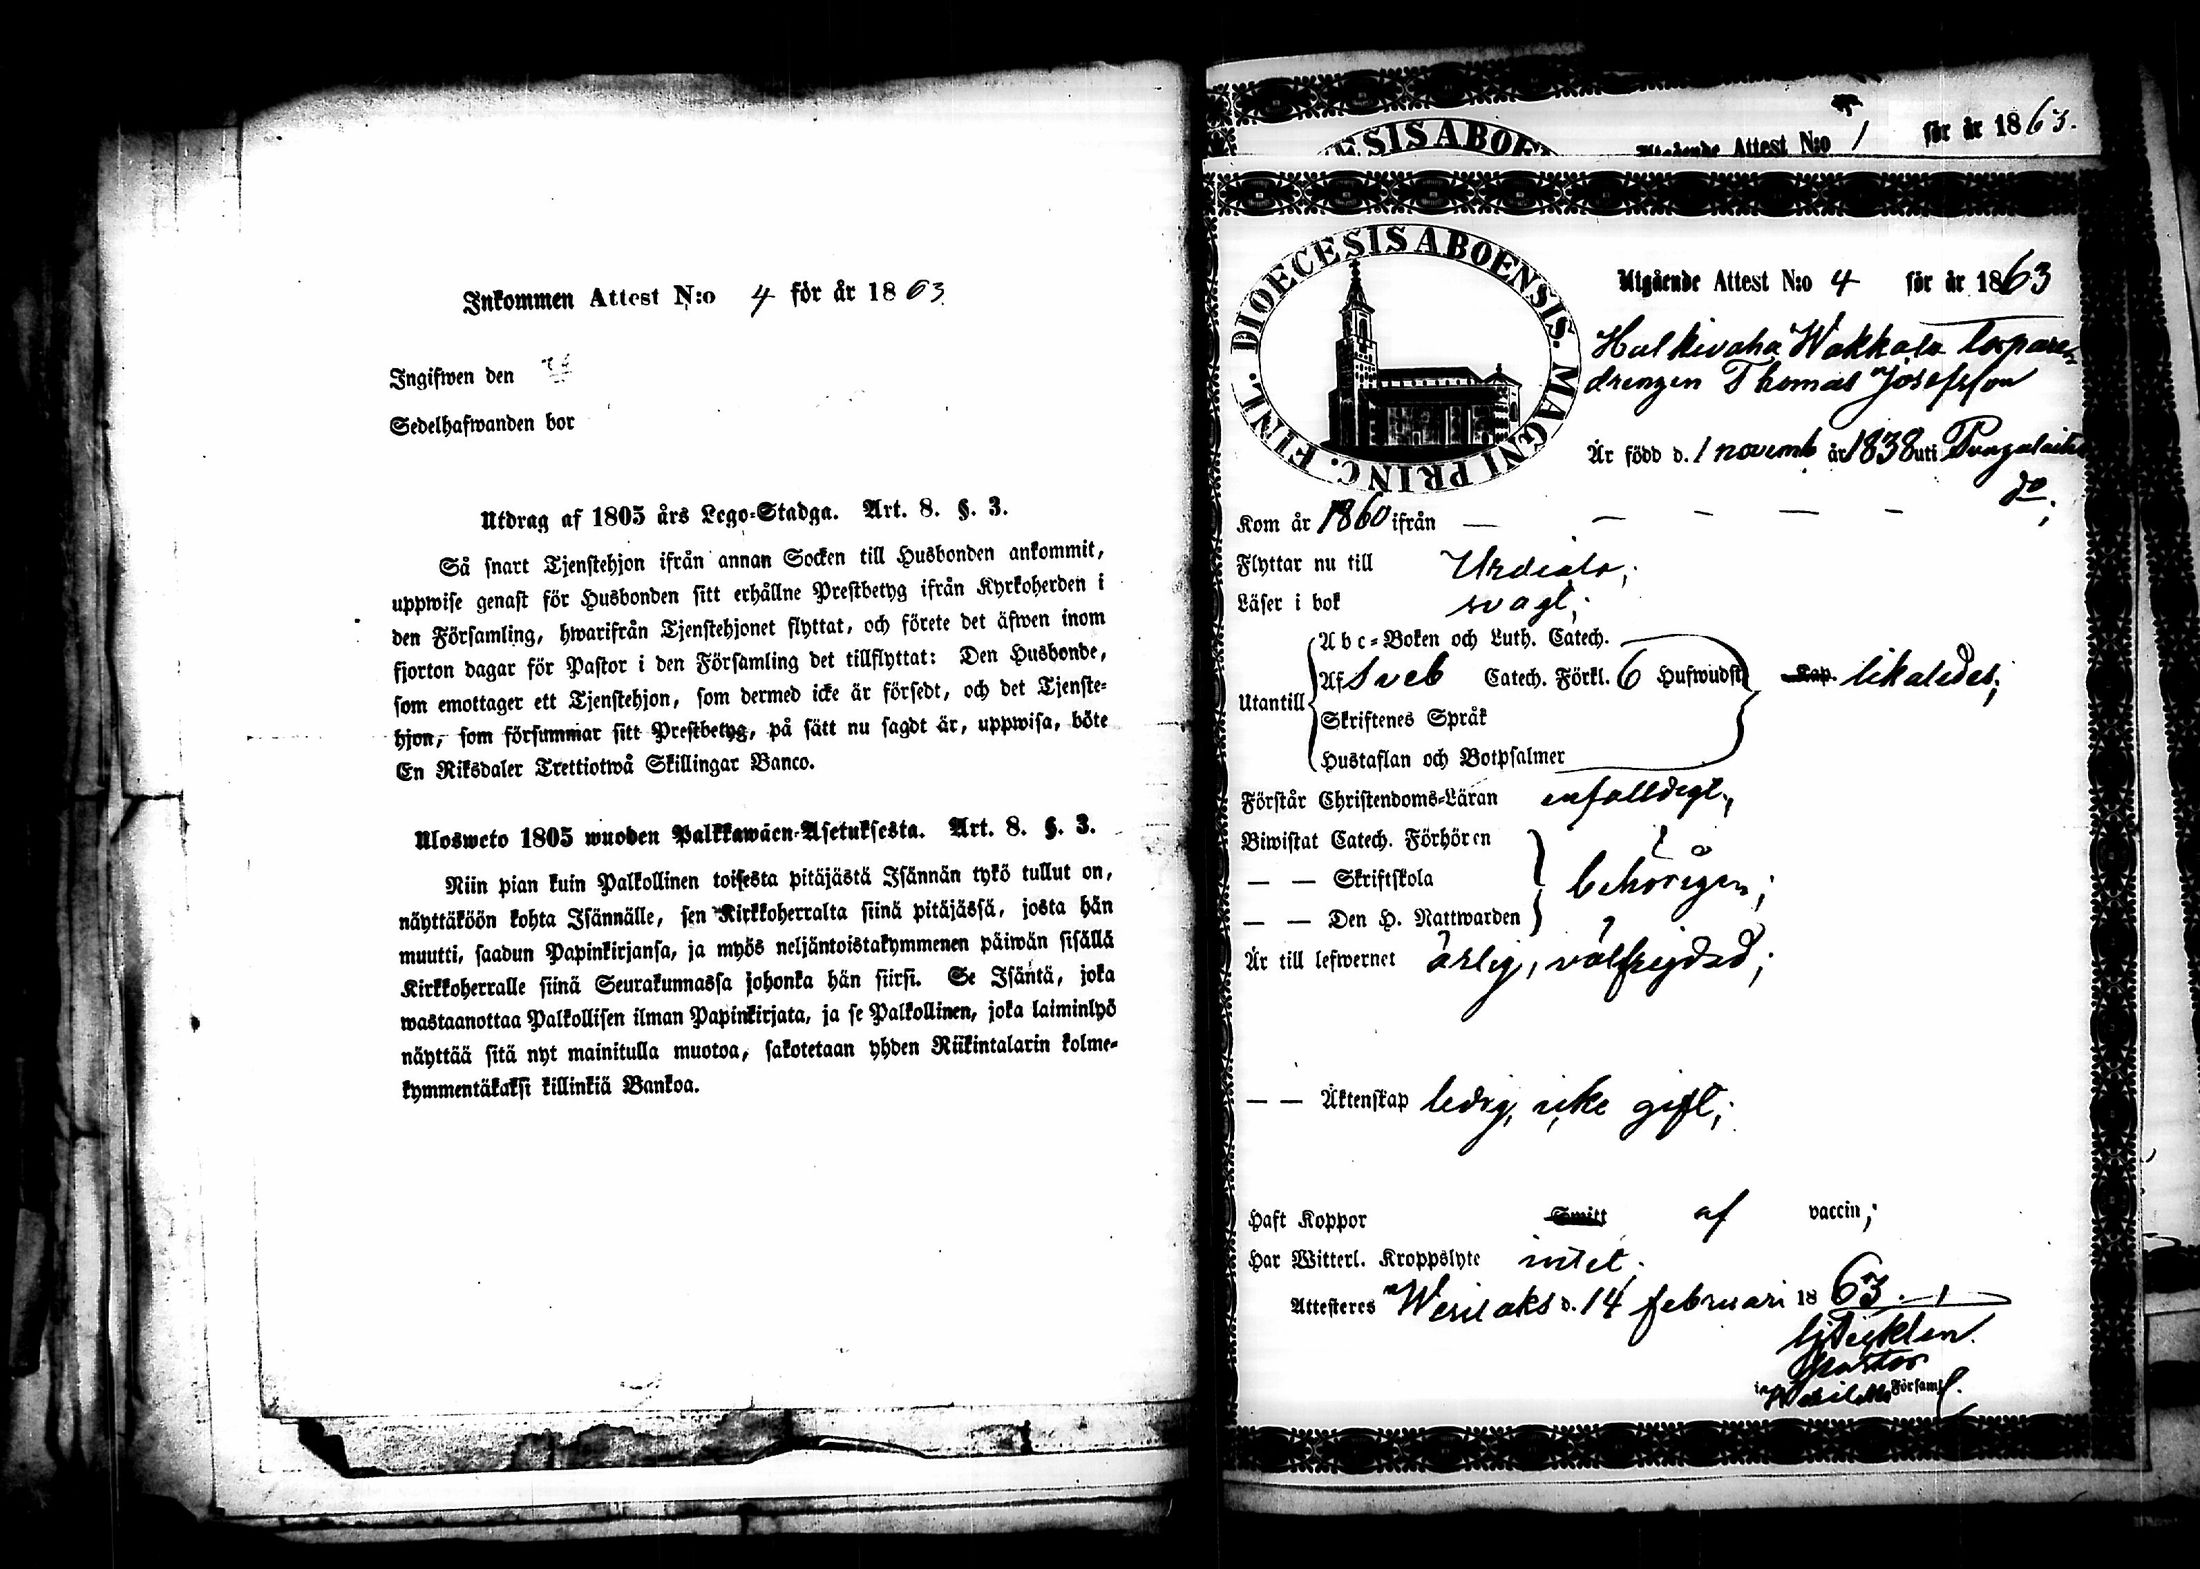 Inkommen Attest N:o 4 för år 1863
Ingifwen den
Sedelhafwanden bor
Utdrag af 1805 års Lego-Stadga. Art. 8. §. 3.
Så snart Tjenstehjon ifrån annan Socken till Husbonden ankommit,
uppwise genast för Husbonden sitt erhållne Prestbetyg ifrån Kyrkoherden i
den Församling, hwarifrån Tjenstehjonet flyttat, och förete det äfwen inom
fjorton dagar för Pastor i den Församling det tillflyttat: Den Husbonde,
som emottager ett Tjenstehjon, som dermed icke är försedt, och det Tjenste-
hjon, som försummar sitt Prestbetyg, på sätt nu sagdt är, uppwisa, böte
En Riksdaler Trettiotwå Skillingar Banco.
Ulosweto 1805 wuoden Palkkawäen-Asetuksesta. Art. 8. §. 3.
Niin pian kuin Palkollinen toisesta pitäjästä Isännän tykö tullut on,
näyttäköön kohta Isännälle, sen Kirkkoherralta siinä pitäjässä, josta hän
muutti, saadun Papinkirjansa, ja myös neljäntoistakymmenen päiwän sisällä
Kirkkoherralle siinä Seurakunnassa johonka hän siirsi. Se Isäntä, joka
wastaanottaa Palkollisen ilman Papinkirjata, ja se Palkollinen, joka laiminlyö
näyttää sitä nyt mainitulla muotoa, sakotetaan yhden Riikintalarin kolme-
kymmentäkaksi killinkiä Bankoa.
ESIS ABOE
Utgående Attest N:o 1 för år 1863.
DIOECESIS ABOENSIS. MAGNI PRINC. FINL.
Utgående Attest N:o 4 för år 1863
Halkivaha Wakkala torpare
drengen Thomas Josefsson
Är född d. 1 novemb år 1838 uti Pungalaitio
do;
Kom år 1860 ifrån — — — — —
Flyttar nu till Urdiala;
Läser i bok svagt;
Abc-Boken och Luth. Catech.
Utantill Af Sveb Catech. Förkl. 6 Hufwudst Kap. likaledes;
Skriftenes Språk
Hustaflan och Botpsalmer
Förstår Christendoms-Läran enfalldigt;
Biwistat Catech. Förhören
— — Skriftskola behörigen;
— — Den H. Nattwarden
Är till lefwernet ärlig, välfrejdad;
— — Äktenskap ledig, icke gift;
Haft Koppor Smitt af vaccin;
Har Witterl. Kroppslyte intet.
Attesteres Wesilaks d. 14 februari 1863.
Pastor
i Wesilaks Församl.